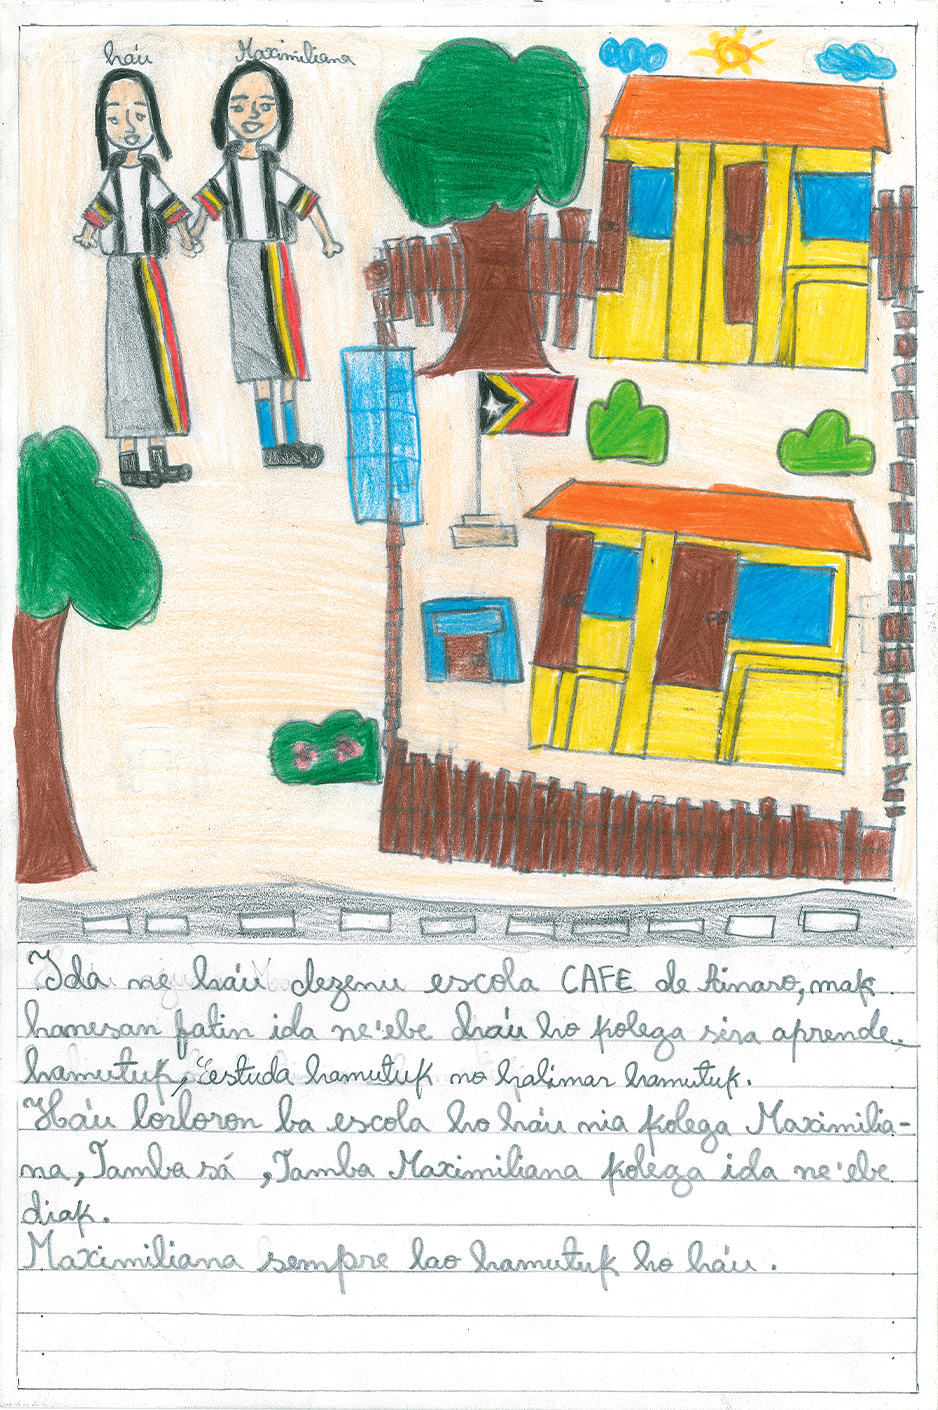 háu
Maximiliana
Ida ne háu dezenu escola CAFE de Ainaro, mak
hanesan fatin ida ne'ebe háu ho kolega sira aprende
hamutuk, Estuda hamutuk no halimar hamutuk.
Háu lorloron ba escola ho háu nia kolega Maximilia-
na, Tamba sá, Tamba Maximiliana kolega ida ne'ebe
diak.
Maximiliana sempre lao hamutuk ho háu.